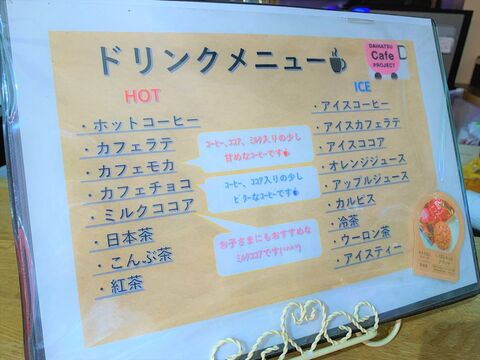 ドリンクメニュー
DAIHATSU
Cafe
PROJECT
HOT
・ホットコーヒー
・カフェラテ
・カフェモカ
・カフェチョコ
・ミルクココア
・日本茶
・こんぶ茶
・紅茶
コーヒー、ココア、ミルク入りの少し
甘めなコーヒーです
コーヒー、ココア入りの少し
ビターなコーヒーです
お子さまにもおすすめな
ミルクココアです(*^^*)
ICE
・アイスコーヒー
・アイスカフェラテ
・アイスココア
・オレンジジュース
・アップルジュース
・カルピス
・冷茶
・ウーロン茶
・アイスティー